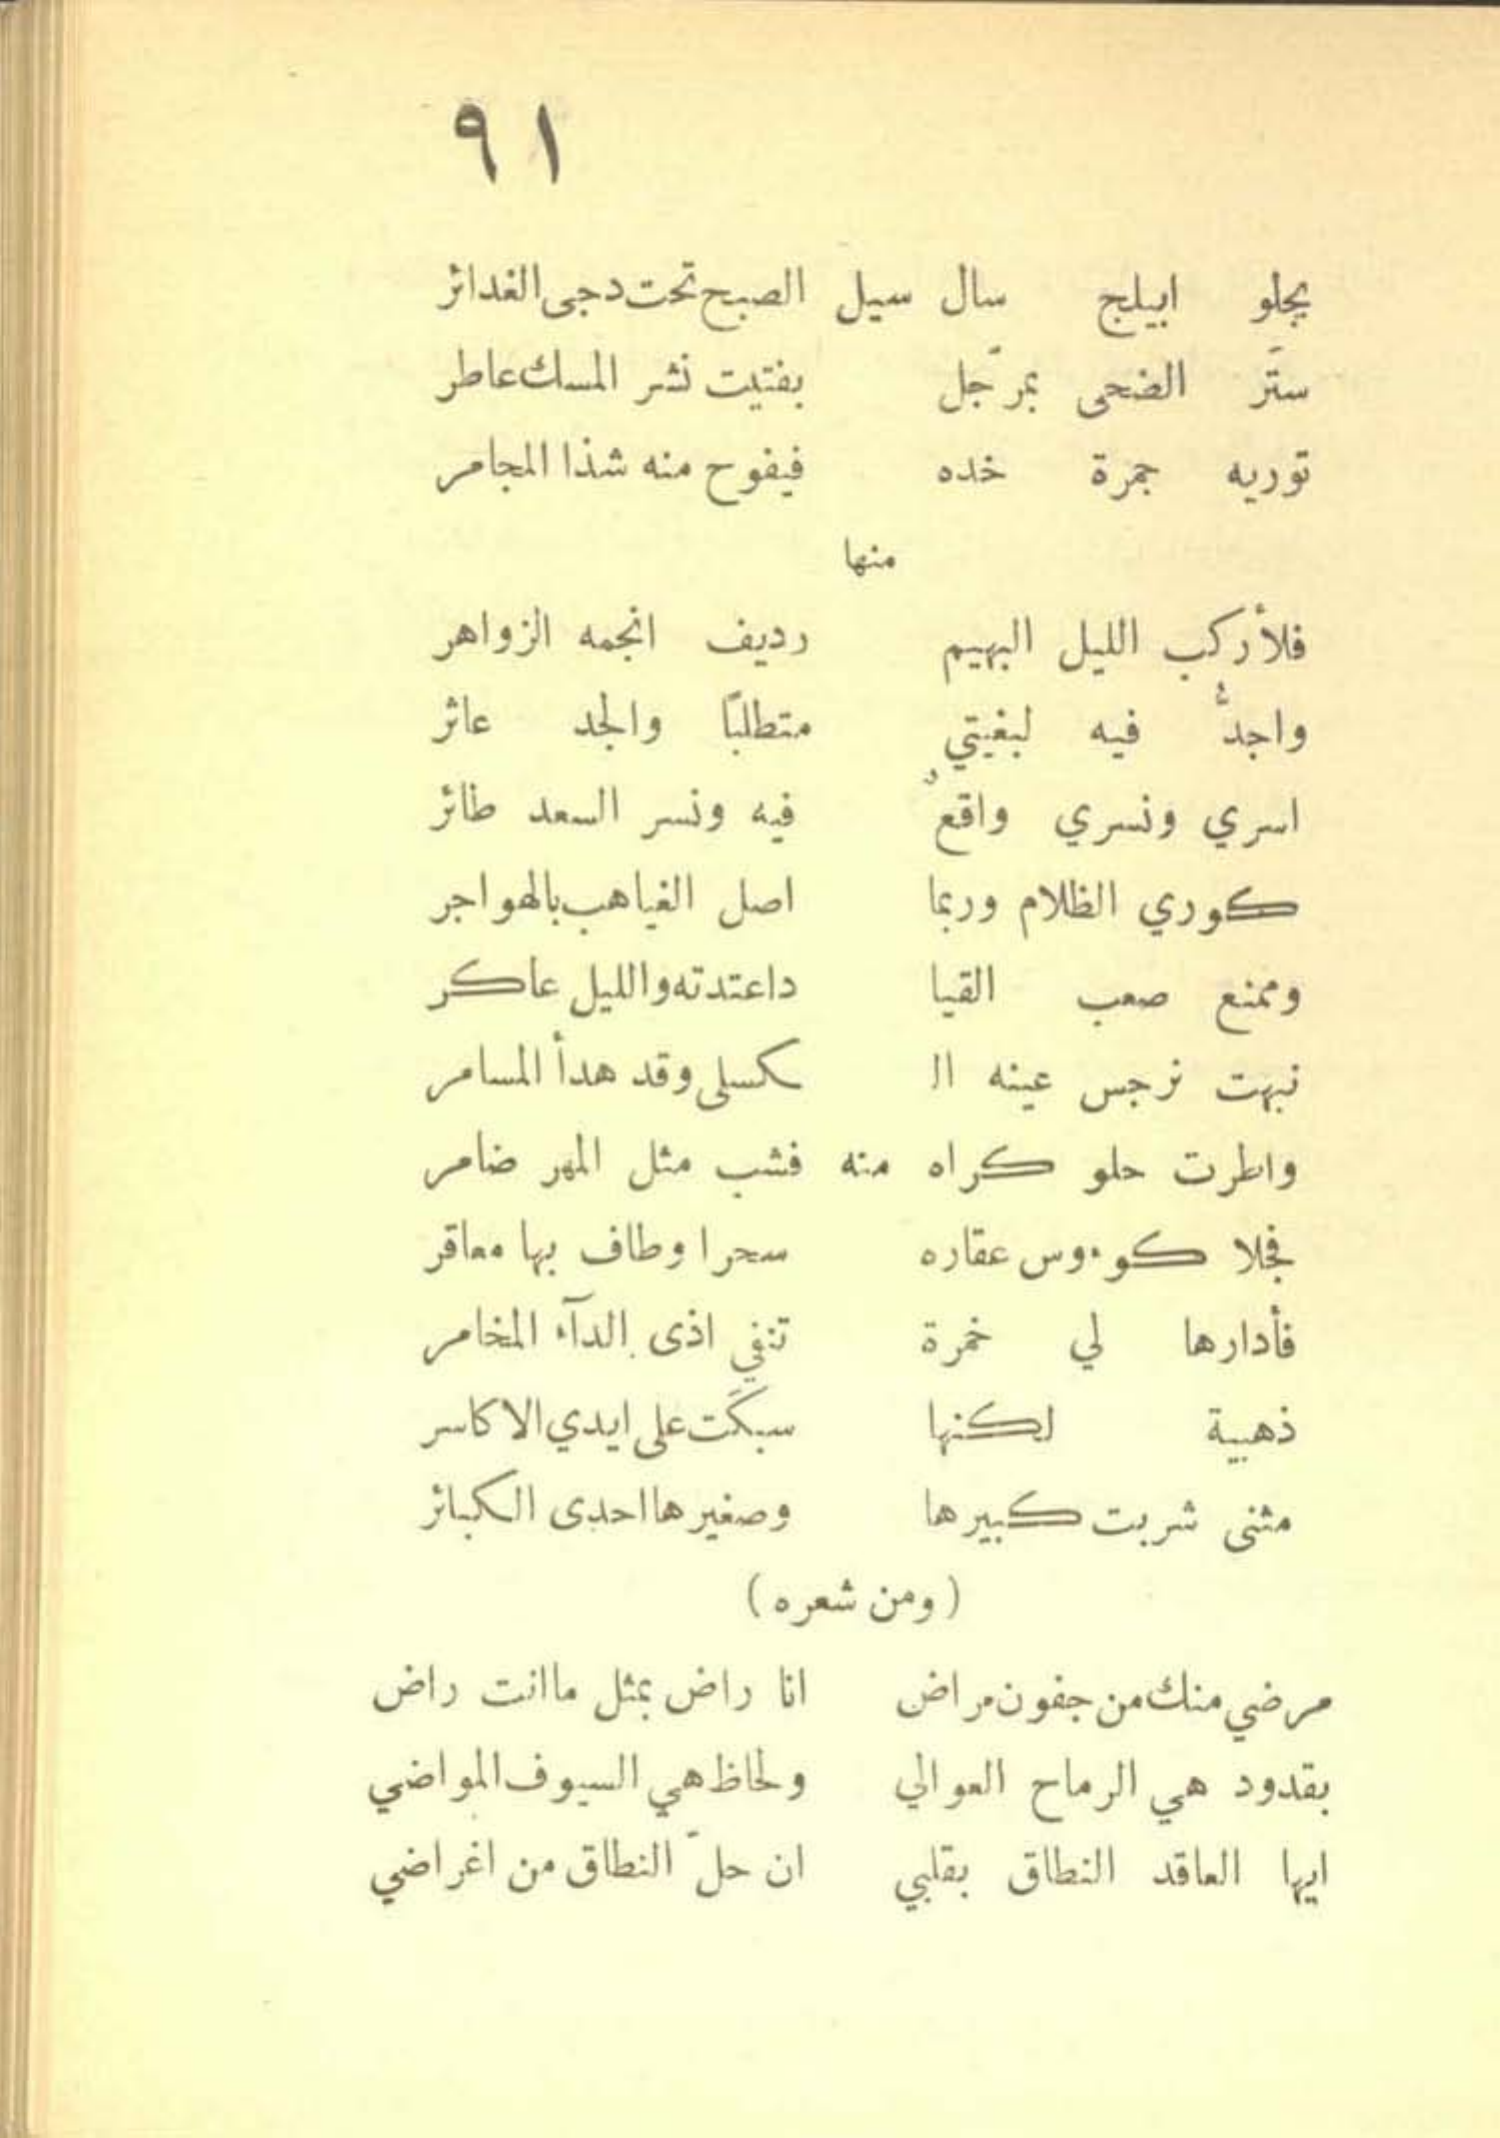 ٩١
يجلو ابيلج سال سيل الصبح تحت دجى الغدائر
ستَر الضحى بمرّجل بفتيت نشر المسك عاطر
توريه جمرة خده فيفوح منه شذا المجامر
منها
فلأركب الليل البهيم رديف انجمه الزواهر
واجدُّ فيه لبغيتي متطلبًا والجد عاثر
اسري ونسري واقعٌ فيه ونسر السعد طائر
كوري الظلام وربما اصل الغياهب بالهواجر
وممنع صعب القيا داعتدته والليل عاكر
نبهت نرجس عينه ال كسلى وقد هدأ المسامر
واطرت حلو كراه منه فشب مثل المهر ضامر
فجلا كوءوس عقاره سحرا وطاف بها معاقر
فأدارها لي خمرة تنفي اذى الدآء المخامر
ذهبية لكنها سبكَت على ايدي الاكاسر
مثنى شربت كبيرها وصغيرها احدى الكبائر
( ومن شعره )
مرضي منك من جفون مراض انا راض بمثل ماانت راض
بقدود هي الرماح العوالي ولحاظ هي السيوف المواضي
ايها العاقد النطاق بقلبي ان حلّ النطاق من اغراضي